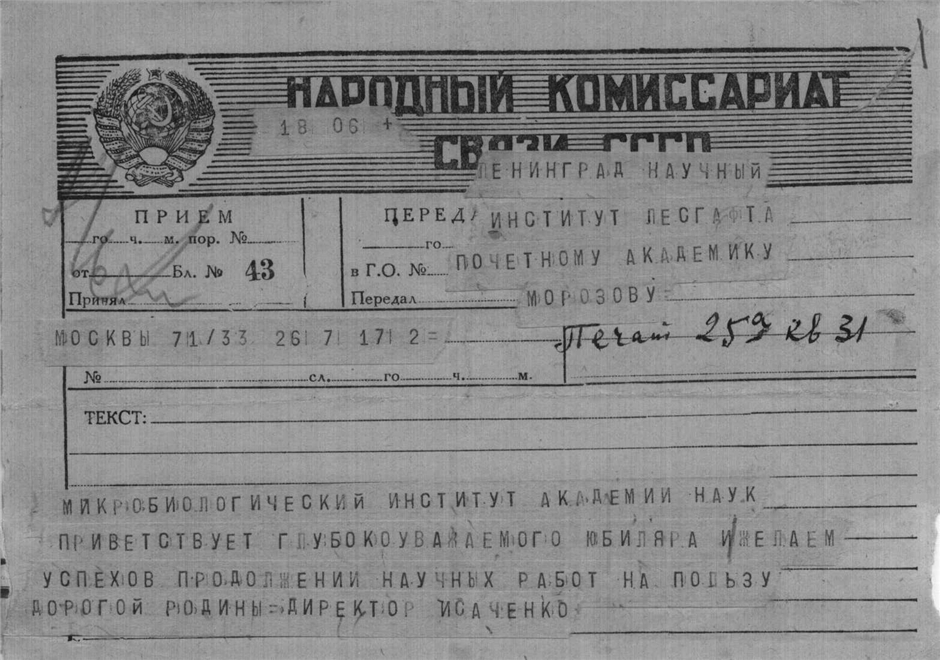 НАРОДНЫЙ КОМИССАРИАТ
СВЯЗИ СССР
18 06 +
ЛЕНИНГРАД НАУЧНЫЙ
ИНСТИТУТ ЛЕСГАФТА
ПОЧЕТНОМУ АКАДЕМИКУ
МОРОЗОВУ=
ПРИЕМ
го ч. м. пор. №
от Бл. № 43
Принял
ПЕРЕД
го
в Г.О. №
Передал
МОСКВЫ 71/33 26 7 17 2=
259 кв 31
№ сл. го ч. м.
ТЕКСТ:
МИКРОБИОЛОГИЧЕСКИЙ ИНСТИТУТ АКАДЕМИИ НАУК
ПРИВЕТСТВУЕТ ГЛУБОКОУВАЖАЕМОГО ЮБИЛЯРА И/ЖЕЛАЕМ
УСПЕХОВ ПРОДОЛЖЕНИИ НАУЧНЫХ РАБОТ НА ПОЛЬЗУ
ДОРОГОЙ РОДИНЫ=ДИРЕКТОР ИСАЧЕНКО